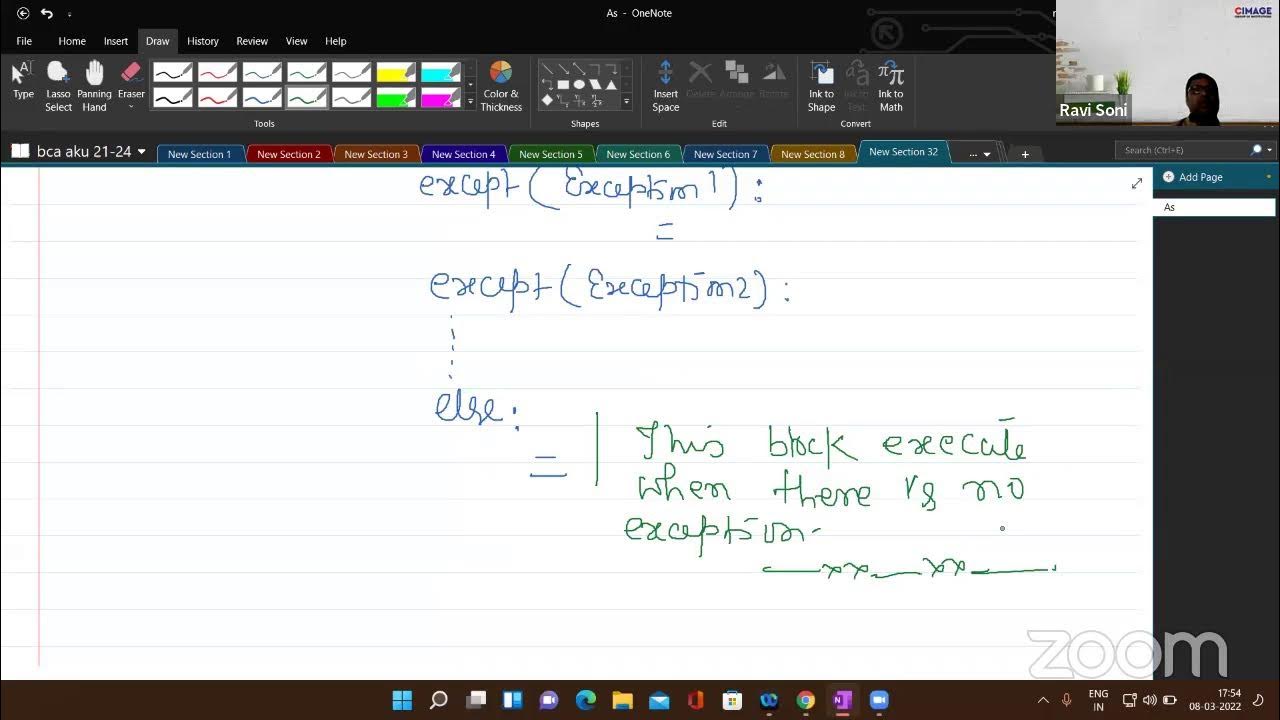 As - OneNote
CIMAGE
GROUP OF INSTITUTIONS
File Home Insert Draw History Review View Help
Type Lasso Select Panning Hand Eraser Color & Thickness Insert Space Delete Arrange Rotate Ink to Shape Ink to Text Ink to Math
Ravi Soni
Tools Shapes Edit Convert
bca aku 21-24 New Section 1 New Section 2 New Section 3 New Section 4 New Section 5 New Section 6 New Section 7 New Section 8 New Section 32 ... + Search (Ctrl+E)
Add Page
As
except (Exception 1) :
=
except (Exception2) :
else :
=
This block execute
when there is no
exception.
zoom
ENG 17:54
IN 08-03-2022